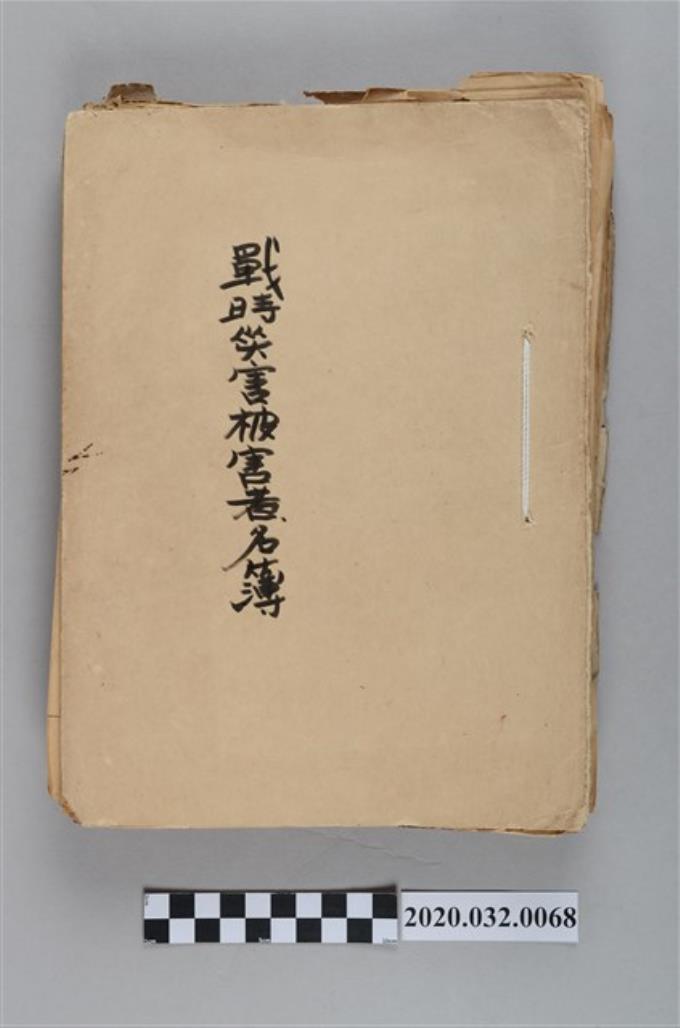 戰時災害被害者名簿
2020.032.0068